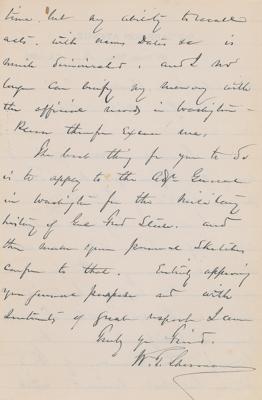 time, but my ability to recall
acts, with names Dates &c is
much diminished. and I no
longer can verify my memory with
the official records in Washington -
Please therefore Excuse me.
The best thing for you to do
is to apply to the Adjt General
in Washington for the Military
history of Genl Fred Steele. and
then make your personal Sketches
conform to that. Entirely approving
your general purpose and with
Sentiments of great respect I am
Truly yr friend.
W. T. Sherman